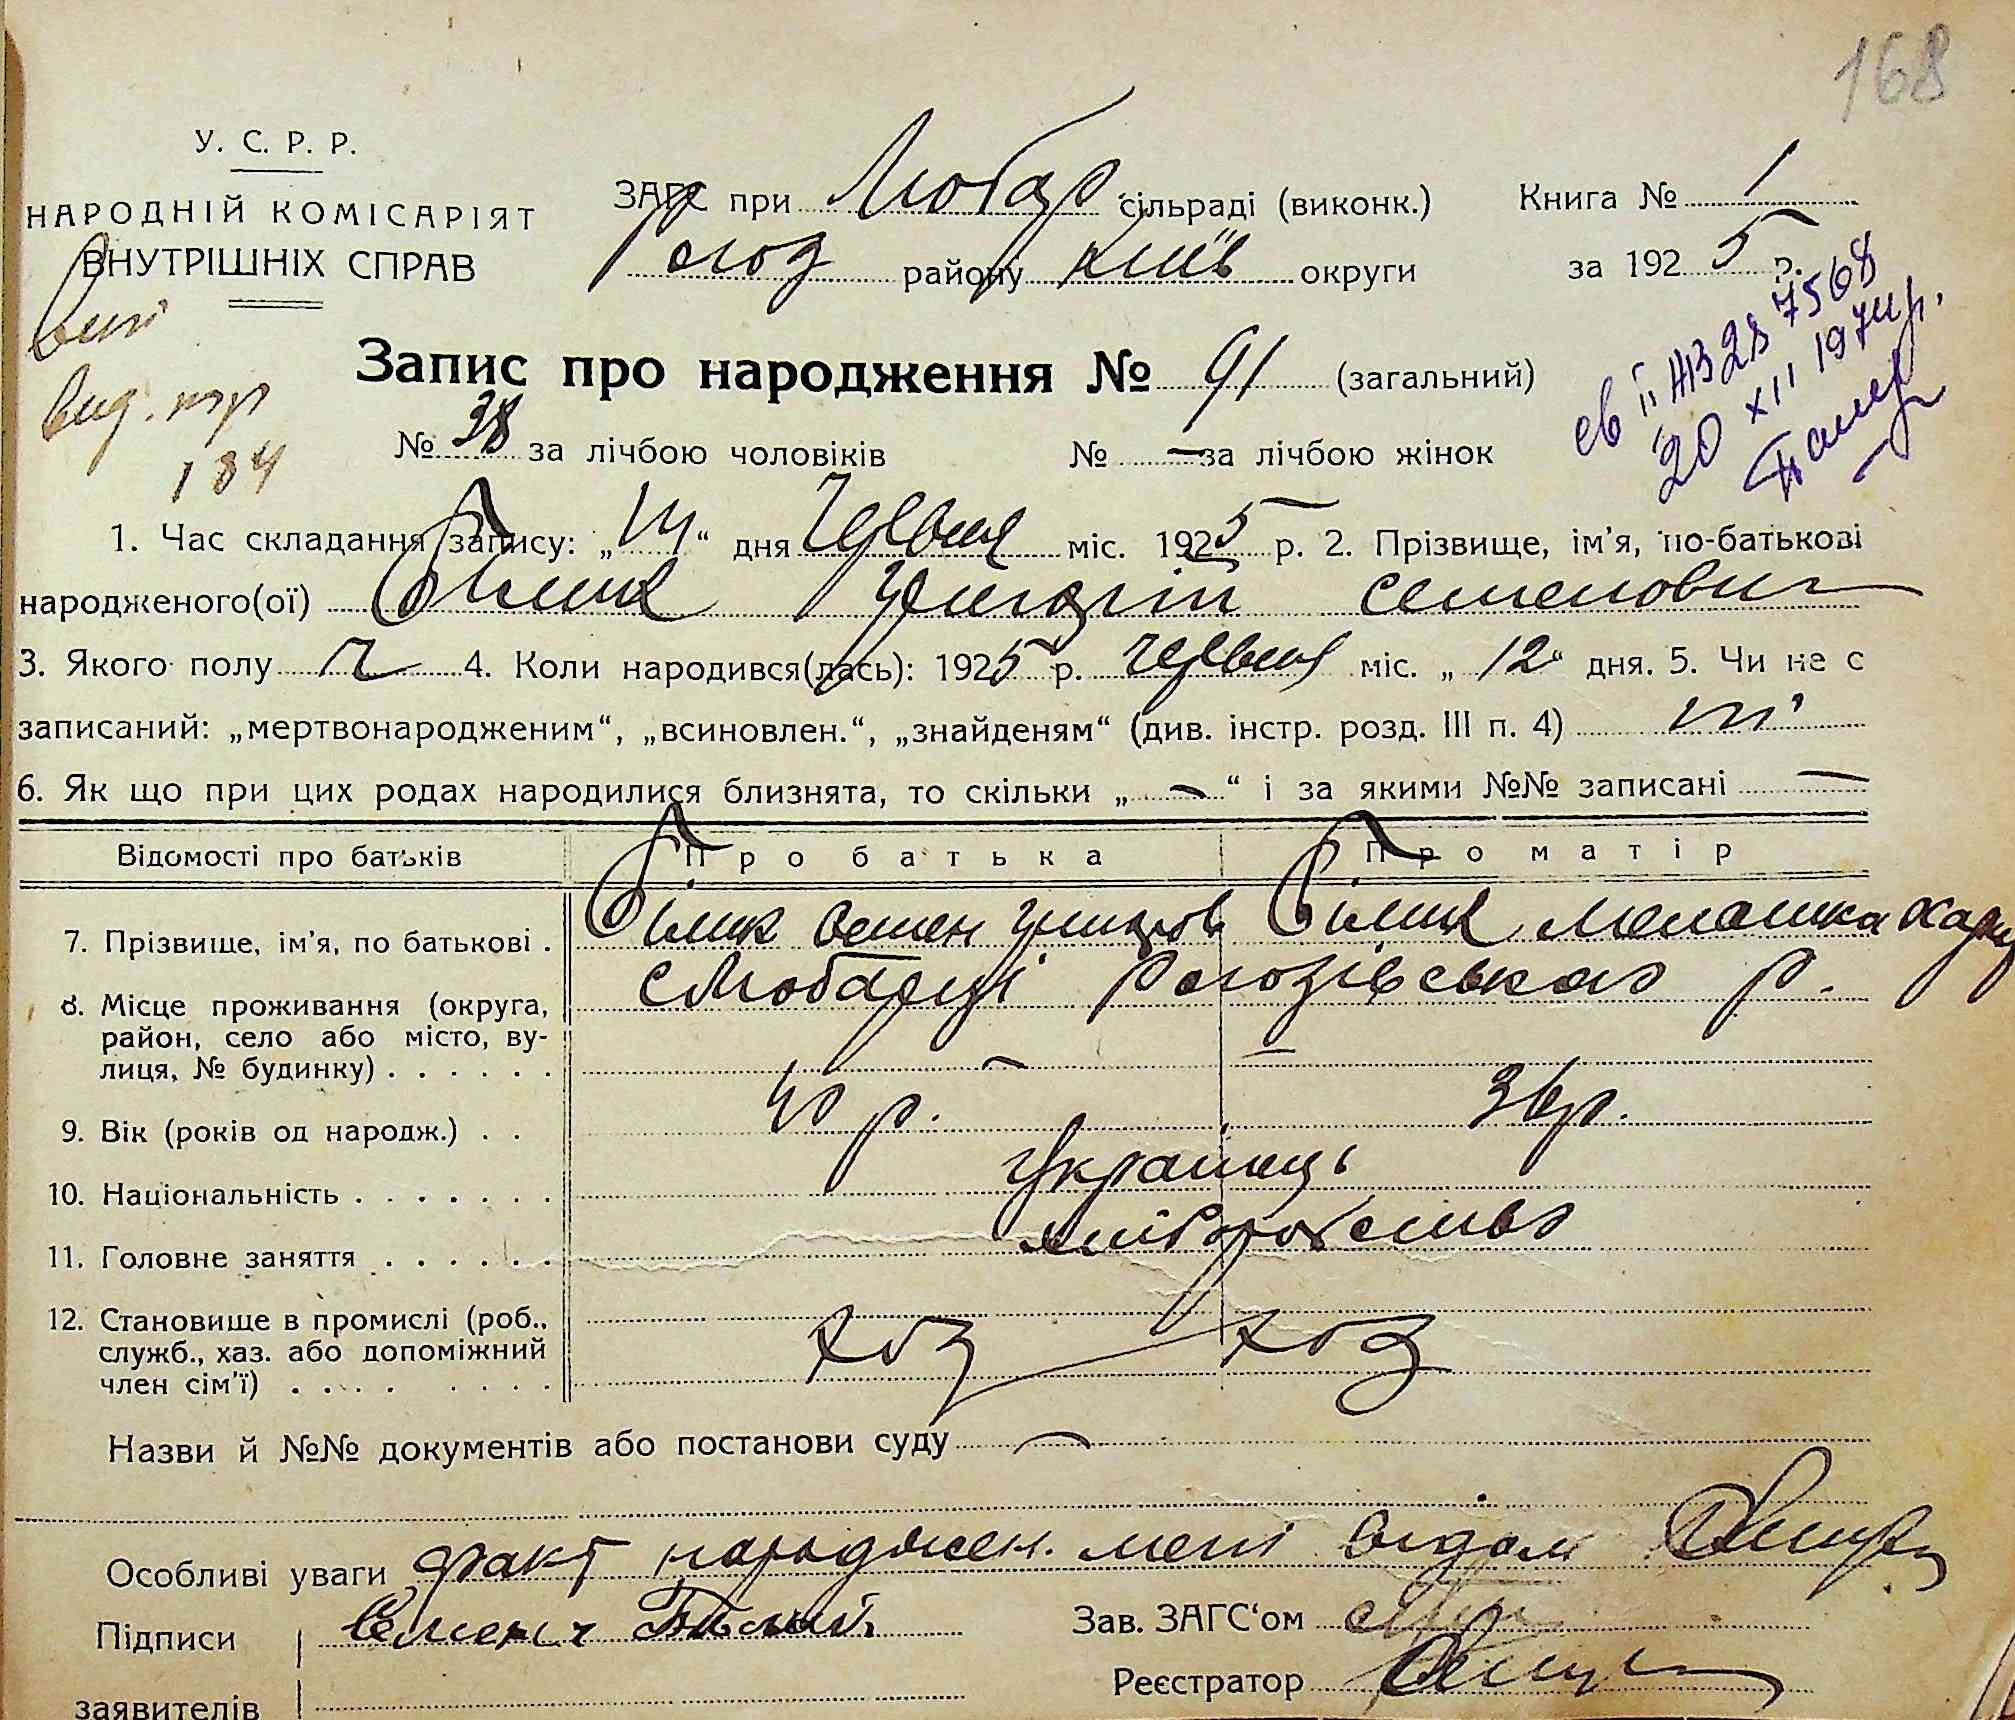 168
У. С. Р. Р.
НАРОДНІЙ КОМІСАРІЯТ
ВНУТРІШНІХ СПРАВ
ЗАГС при Любар сільраді (виконк.)
Рогоз району Київ округи
Книга № 1
за 1925 р.
вид.
184
Запис про народження № 91 (загальний)
№ 38 за лічбою чоловіків № — за лічбою жінок
св ІІ ЖВ 28 7568
20 XII 1974 р.
1. Час складання запису: „14“ дня Червня міс. 1925 р. 2. Прізвище, ім'я, по-батькові
народженого(ої) Білик Григорій Семенович
3. Якого полу ч 4. Коли народився(лась): 1925 р. червня міс. „12“ дня. 5. Чи не є
записаний: „мертвонародженим“, „всиновлен.“, „знайденям“ (див. інстр. розд. III п. 4) ні
6. Як що при цих родах народилися близнята, то скільки „—“ і за якими №№ записані —
Відомості про батьків Про батька Про матір
7. Прізвище, ім'я, по батькові . Білик Семен Григоров Білик Мелашка Хари
8. Місце проживання (округа, с Любарці Рогозівського р.
район, село або місто, ву-
лиця, № будинку) . . . . . . — —
9. Вік (років од народж.) . . 40 р. 36 р.
10. Національність . . . . . . . Українець
11. Головне заняття . . . . . . хліборобство
12. Становище в промислі (роб.,
служб., хаз. або допоміжний хоз хоз
член сім'ї) . . . . . . . .
Назви й №№ документів або постанови суду —
Особливі уваги факт народжен. мені відом
Підписи Семен Бѣлый
заявителів
Зав. ЗАГС'ом
Реєстратор